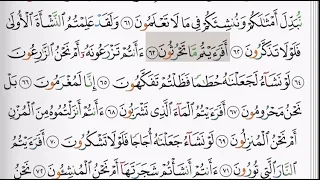 نُّبَدِّلَ أَمْثَـٰلَكُمْ وَنُنشِئَكُمْ فِى مَا لَا تَعْلَمُونَ ٦١ وَلَقَدْ عَلِمْتُمُ ٱلنَّشْأَةَ ٱلْأُولَىٰ
فَلَوْلَا تَذَكَّرُونَ ٦٢ أَفَرَءَيْتُم مَّا تَحْرُثُونَ ٦٣ ءَأَنتُمْ تَزْرَعُونَهُۥٓ أَمْ نَحْنُ ٱلزَّٰرِعُونَ
٦٤ لَوْ نَشَآءُ لَجَعَلْنَـٰهُ حُطَـٰمًا فَظَلْتُمْ تَفَكَّهُونَ ٦٥ إِنَّا لَمُغْرَمُونَ ٦٦ بَلْ
نَحْنُ مَحْرُومُونَ ٦٧ أَفَرَءَيْتُمُ ٱلْمَآءَ ٱلَّذِى تَشْرَبُونَ ٦٨ ءَأَنتُمْ أَنزَلْتُمُوهُ مِنَ ٱلْمُزْنِ
أَمْ نَحْنُ ٱلْمُنزِلُونَ ٦٩ لَوْ نَشَآءُ جَعَلْنَـٰهُ أُجَاجًا فَلَوْلَا تَشْكُرُونَ ٧٠ أَفَرَءَيْتُمُ
ٱلنَّارَ ٱلَّتِى تُورُونَ ٧١ ءَأَنتُمْ أَنشَأْتُمْ شَجَرَتَهَآ أَمْ نَحْنُ ٱلْمُنشِـُٔونَ ٧٢ نَحْنُ